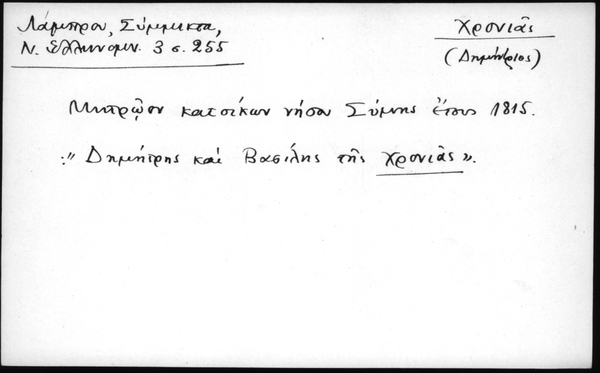 Λάμπρου, Σύμμικτα,
Ν. Ελληνομν. 3 σ. 255
Χρονιᾶς
(Δημήτριος)
Μητρῷον κατοίκων νήσου Σύμης ἔτους 1815.
:" Δημήτρης καὶ Βασίλης τῆς Χρονιᾶς».